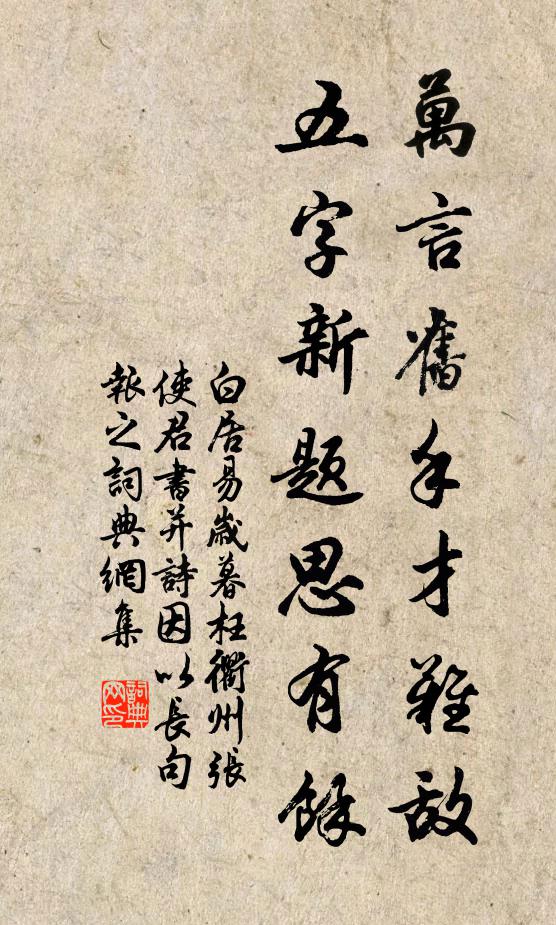 萬言舊手才難敵
五字新題思有餘
白居易歲暮枉衢州張
使君書并詩因以長句
報之詞典網集
詞典网印